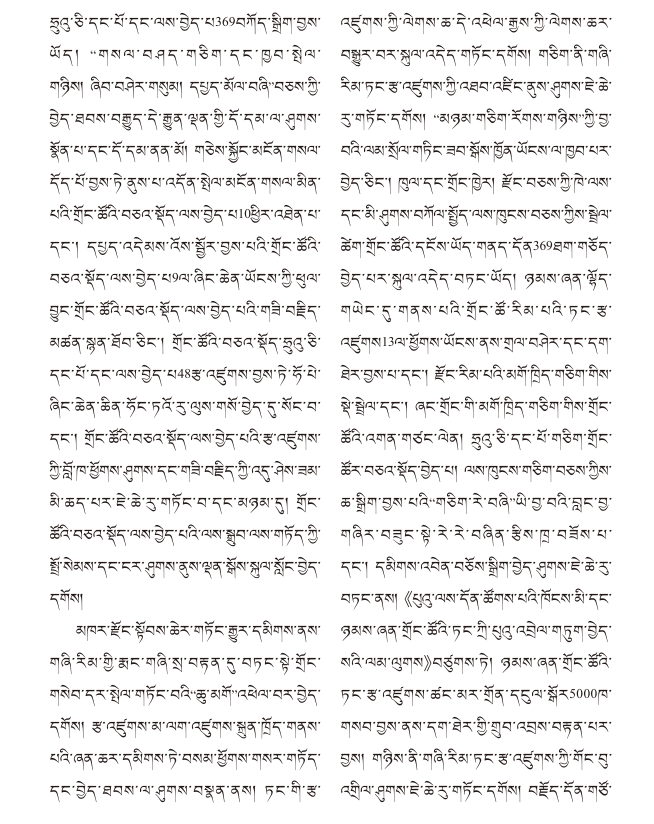 ཧྲུའུ་ཅི་དང་པོ་དང་ལས་བྱེད་པ369བཀོད་སྒྲིག་བྱས་
ཡོད། “གསལ་བཤད་གཅིག་དང་ཁྱབ་སྤེལ་
གཉིས། ཞིབ་བཤེར་གསུམ། དཔྱད་མོལ་བཞི”བཅས་ཀྱི་
བྱེད་ཐབས་བརྒྱུད་དེ་རྒྱུན་ལྡན་གྱི་དོ་དམ་ལ་ཤུགས་
སྣོན་པ་དང་དོ་དམ་ནན་མོ། གཅེས་སྐྱོང་མངོན་གསལ་
དོད་པོ་བྱས་ཏེ་ནུས་པ་འདོན་སྤེལ་མངོན་གསལ་མིན་
པའི་གྲོང་ཚོའི་བཅའ་སྡོད་ལས་བྱེད་པ10ཕྱིར་འཐེན་པ་
དང་། དཔྱད་འདེམས་འོས་སྦྱོར་བྱས་པའི་གྲོང་ཚོའི་
བཅའ་སྡོད་ལས་བྱེད་པ9ལ་ཞིང་ཆེན་ཡོངས་ཀྱི་ཕུལ་
བྱུང་གྲོང་ཚོའི་བཅའ་སྡོད་ལས་བྱེད་པའི་གཟི་བརྗིད་
མཚན་སྙན་ཐོབ་ཅིང་། གྲོང་ཚོའི་བཅའ་སྡོད་ཧྲུའུ་ཅི་
དང་པོ་དང་ལས་བྱེད་པ48རྩ་འཛུགས་བྱས་ཏེ་ཧོ་པེ་
ཞིང་ཆེན་ཆིན་ཧོང་ཏའོ་རུ་ལུས་གསོ་བྱེད་དུ་སོང་བ་
དང་། གྲོང་ཚོའི་བཅའ་སྡོད་ལས་བྱེད་པའི་རྩ་འཛུགས་
ཀྱི་བློ་ཁ་ཕྱོགས་ཤུགས་དང་གཟི་བརྗིད་ཀྱི་འདུ་ཤེས་ཟམ་
མི་ཆད་པར་ཇེ་ཆེ་རུ་གཏོང་བ་དང་མཉམ་དུ། གྲོང་
ཚོའི་བཅའ་སྡོད་ལས་བྱེད་པའི་ལས་སྒྲུབ་ལས་གཏོད་ཀྱི་
སྤྲོ་སེམས་དང་ངར་ཤུགས་ནུས་ལྡན་སྒོས་སྐུལ་སློང་བྱེད་
དགོས།
མཁར་རྫོང་སྟོབས་ཆེར་གཏོང་རྒྱུར་དམིགས་ནས་
གཞི་རིམ་གྱི་རྨང་གཞི་སྲ་བརྟན་དུ་བཏང་སྟེ་གྲོང་
གསེབ་དར་སྤེལ་གཏོང་བའི“ཆུ་མགོ”འཕེལ་བར་བྱེད་
དགོས། རྩ་འཛུགས་མ་ལག་འཛུགས་སྐྲུན་ཁྲོད་གནས་
པའི་ཞན་ཆར་དམིགས་ཏེ་བསམ་ཕྱོགས་གསར་གཏོད་
དང་བྱེད་ཐབས་ལ་ཤུགས་བསྣན་ནས། ཏང་གི་རྩ་
འཛུགས་ཀྱི་ལེགས་ཆ་དེ་འཕེལ་རྒྱས་ཀྱི་ལེགས་ཆར་
བསྒྱུར་བར་སྐུལ་འདེད་གཏོང་དགོས། གཅིག་ནི་གཞི་
རིམ་ཏང་རྩ་འཛུགས་ཀྱི་འཐབ་འཛིང་ནུས་ཤུགས་ཇེ་ཆེ་
རུ་གཏོང་དགོས། “མཉམ་གཅིག་རོགས་གཉིས”ཀྱི་བྱ་
བའི་ལམ་སྲོལ་གཏིང་ཟབ་སྒོས་ཁྱོན་ཡོངས་ལ་ཁྱབ་པར་
བྱེད་ཅིང་། ཁུལ་དང་གྲོང་ཁྱེར། རྫོང་བཅས་ཀྱི་ཁེ་ལས་
དང་མི་ཤུགས་བཀོལ་སྤྱོད་ལས་ཁུངས་བཅས་ཀྱིས་སྦྲེལ་
ཚེག་གྲོང་ཚོའི་དངོས་ཡོད་གནད་དོན369ཐག་གཅོད་
བྱེད་པར་སྐུལ་འདེད་བཏང་ཡོད། ཉམས་ཞན་ལྷོད་
གཡེང་དུ་གནས་པའི་གྲོང་ཚོ་རིམ་པའི་ཏང་རྩ་
འཛུགས13ལ་ཕྱོགས་ཡོངས་ནས་གྲལ་བཤེར་དང་དག་
ཐེར་བྱས་པ་དང་། རྫོང་རིམ་པའི་མགོ་ཁྲིད་གཅིག་གིས་
སྡེ་སྦྲེལ་དང་། ཞང་གྲོང་གི་མགོ་ཁྲིད་གཅིག་གིས་གྲོང་
ཚོའི་འགན་གཙང་ལེན། ཧྲུའུ་ཅི་དང་པོ་གཅིག་གྲོང་
ཚོར་བཅའ་སྡོད་བྱེད་པ། ལས་ཁུངས་གཅིག་བཅས་ཀྱིས་
ཆ་སྒྲིག་བྱས་པའི“གཅིག་རེ་བཞི”ཡི་བྱ་བའི་བླང་བྱ་
གཞིར་བཟུང་སྟེ་རེ་རེ་བཞིན་རྩིས་ཁྲ་བཟོས་པ་
དང་། དམིགས་འབེན་བཅོས་སྒྲིག་བྱེད་ཤུགས་ཇེ་ཆེ་རུ་
བཏང་ནས། 《པུའུ་ལས་དོན་ཚོགས་པའི་ཁོངས་མི་དང་
ཉམས་ཞན་གྲོང་ཚོའི་ཏང་ཀྲི་པུའུ་འབྲེལ་གཏུག་བྱེད་
སའི་ལམ་ལུགས》བཙུགས་ཏེ། ཉམས་ཞན་གྲོང་ཚོའི་
ཏང་རྩ་འཛུགས་ཚང་མར་གྲོན་དངུལ་སྒོར5000ཁ་
གསབ་བྱས་ནས་དག་ཐེར་གྱི་གྲུབ་འབྲས་བརྟན་པར་
བྱས། གཉིས་ནི་གཞི་རིམ་ཏང་རྩ་འཛུགས་ཀྱི་གོང་བུ་
འགྲིལ་ཤུགས་ཇེ་ཆེ་རུ་གཏོང་དགོས། བརྗོད་དོན་གཙོ་